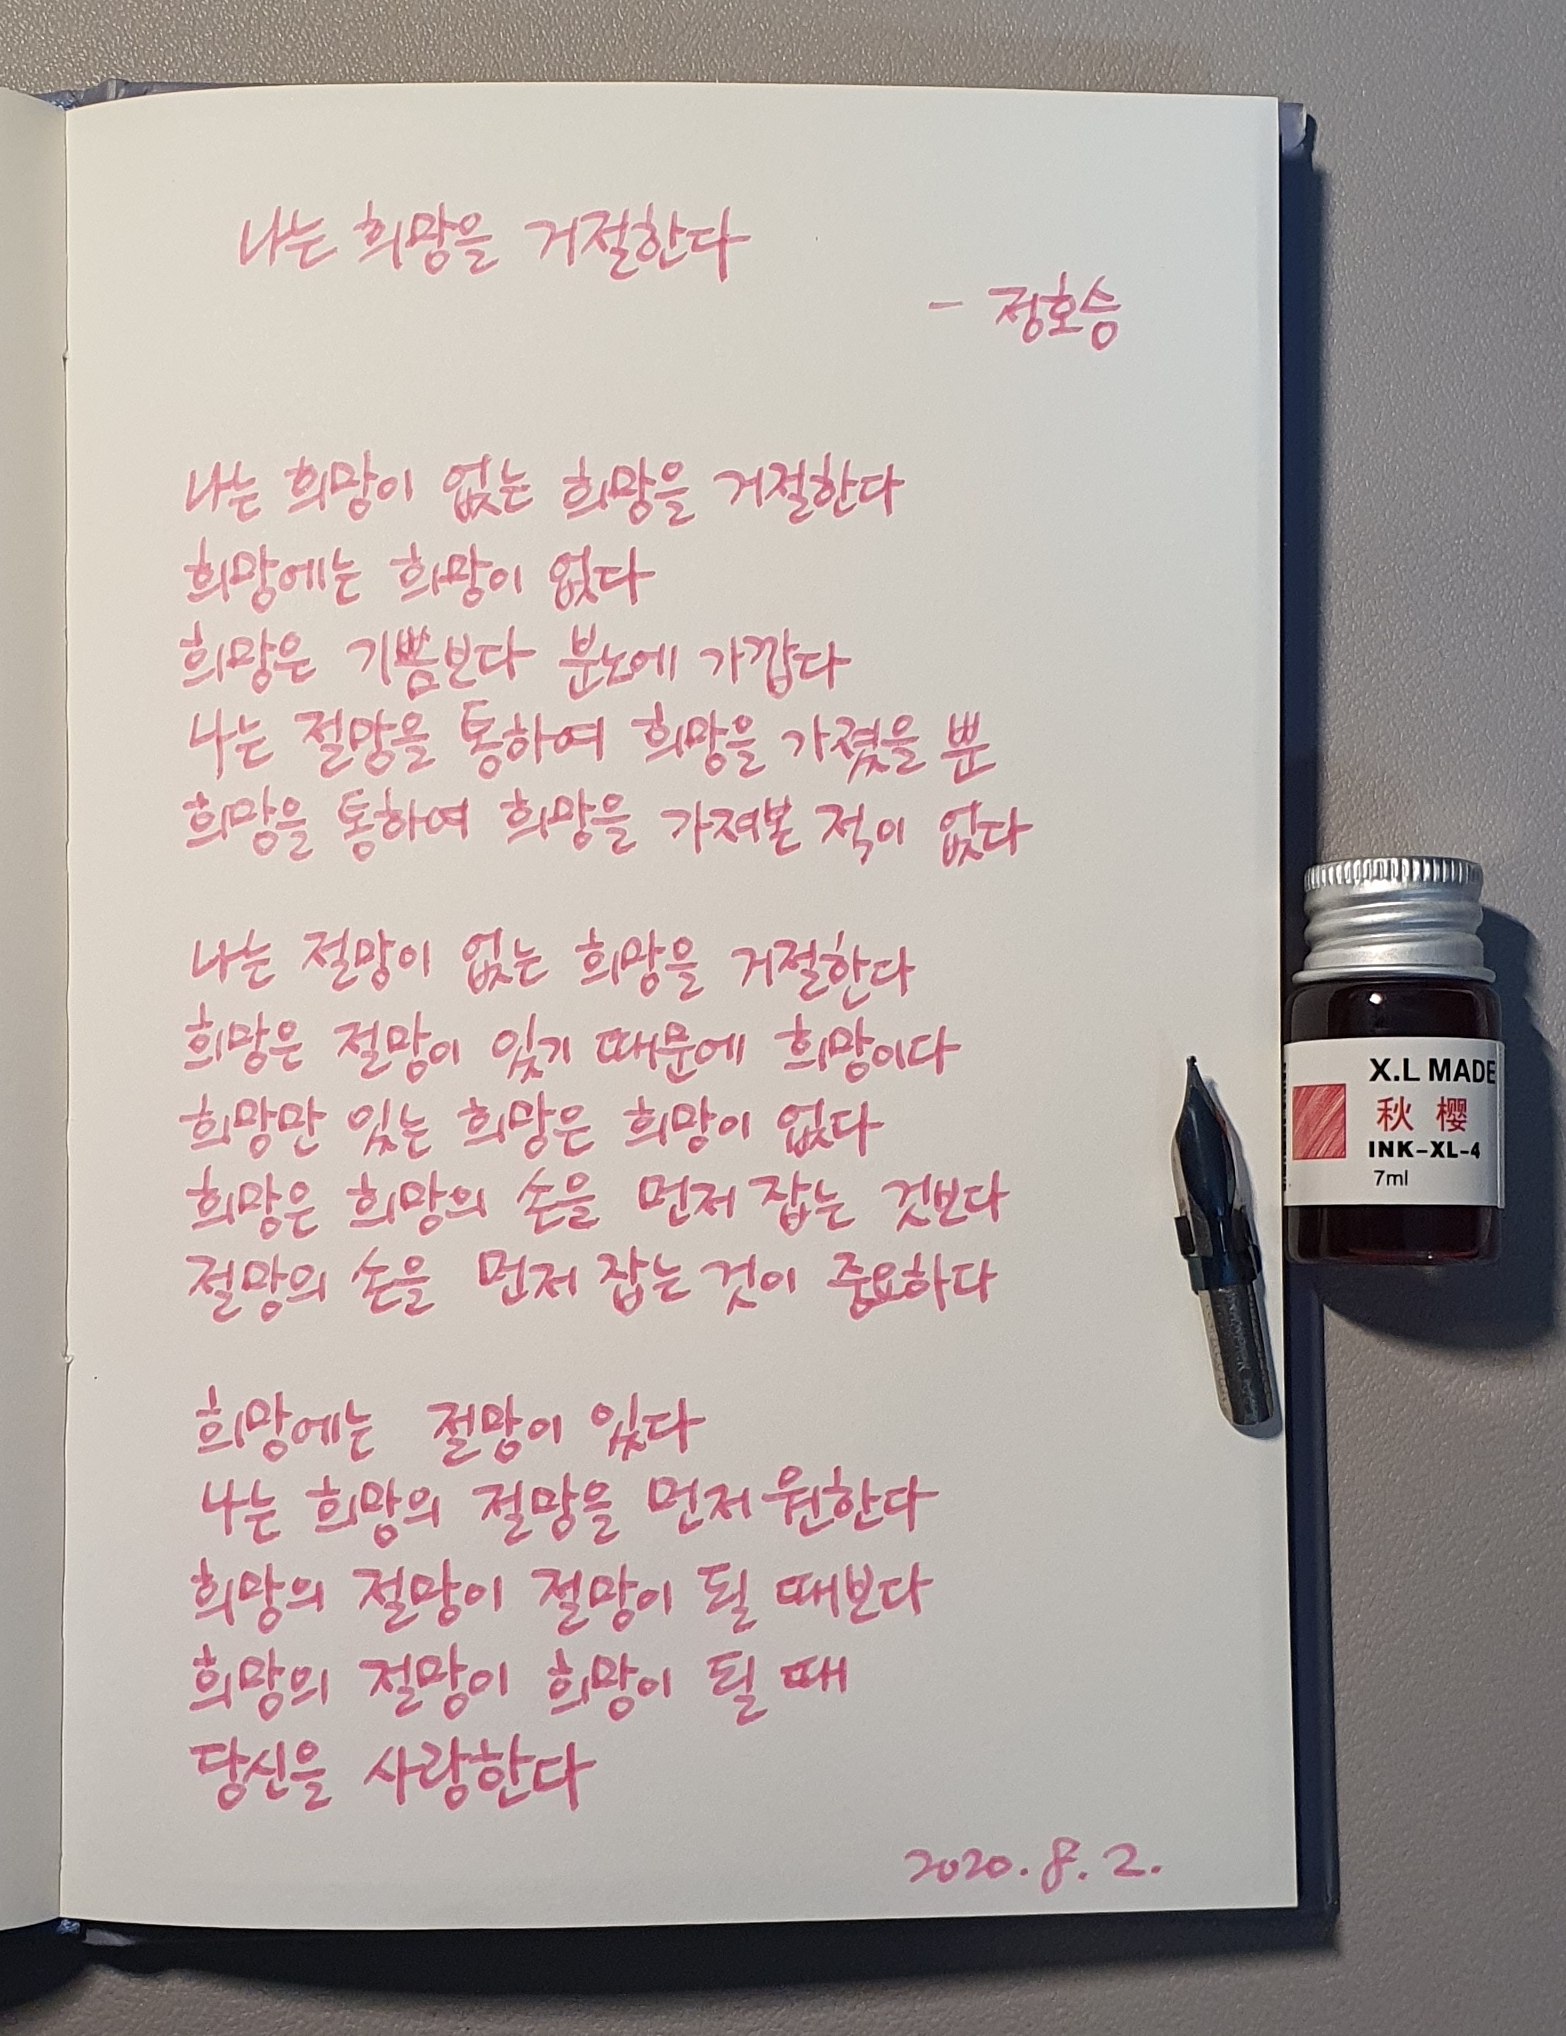 나는 희망을 거절한다
- 정호승
나는 희망이 없는 희망을 거절한다
희망에는 희망이 없다
희망은 기쁨보다 분노에 가깝다
나는 절망을 통하여 희망을 가졌을 뿐
희망을 통하여 희망을 가져본 적이 없다
나는 절망이 없는 희망을 거절한다
희망은 절망이 있기 때문에 희망이다
희망만 있는 희망은 희망이 없다
희망은 희망의 손을 먼저 잡는 것보다
절망의 손을 먼저 잡는 것이 중요하다
희망에는 절망이 있다
나는 희망의 절망을 먼저 원한다
희망의 절망이 절망이 될 때보다
희망의 절망이 희망이 될 때
당신을 사랑한다
2020. 8. 2.
X.L MADE
秋 樱
INK-XL-4
7ml